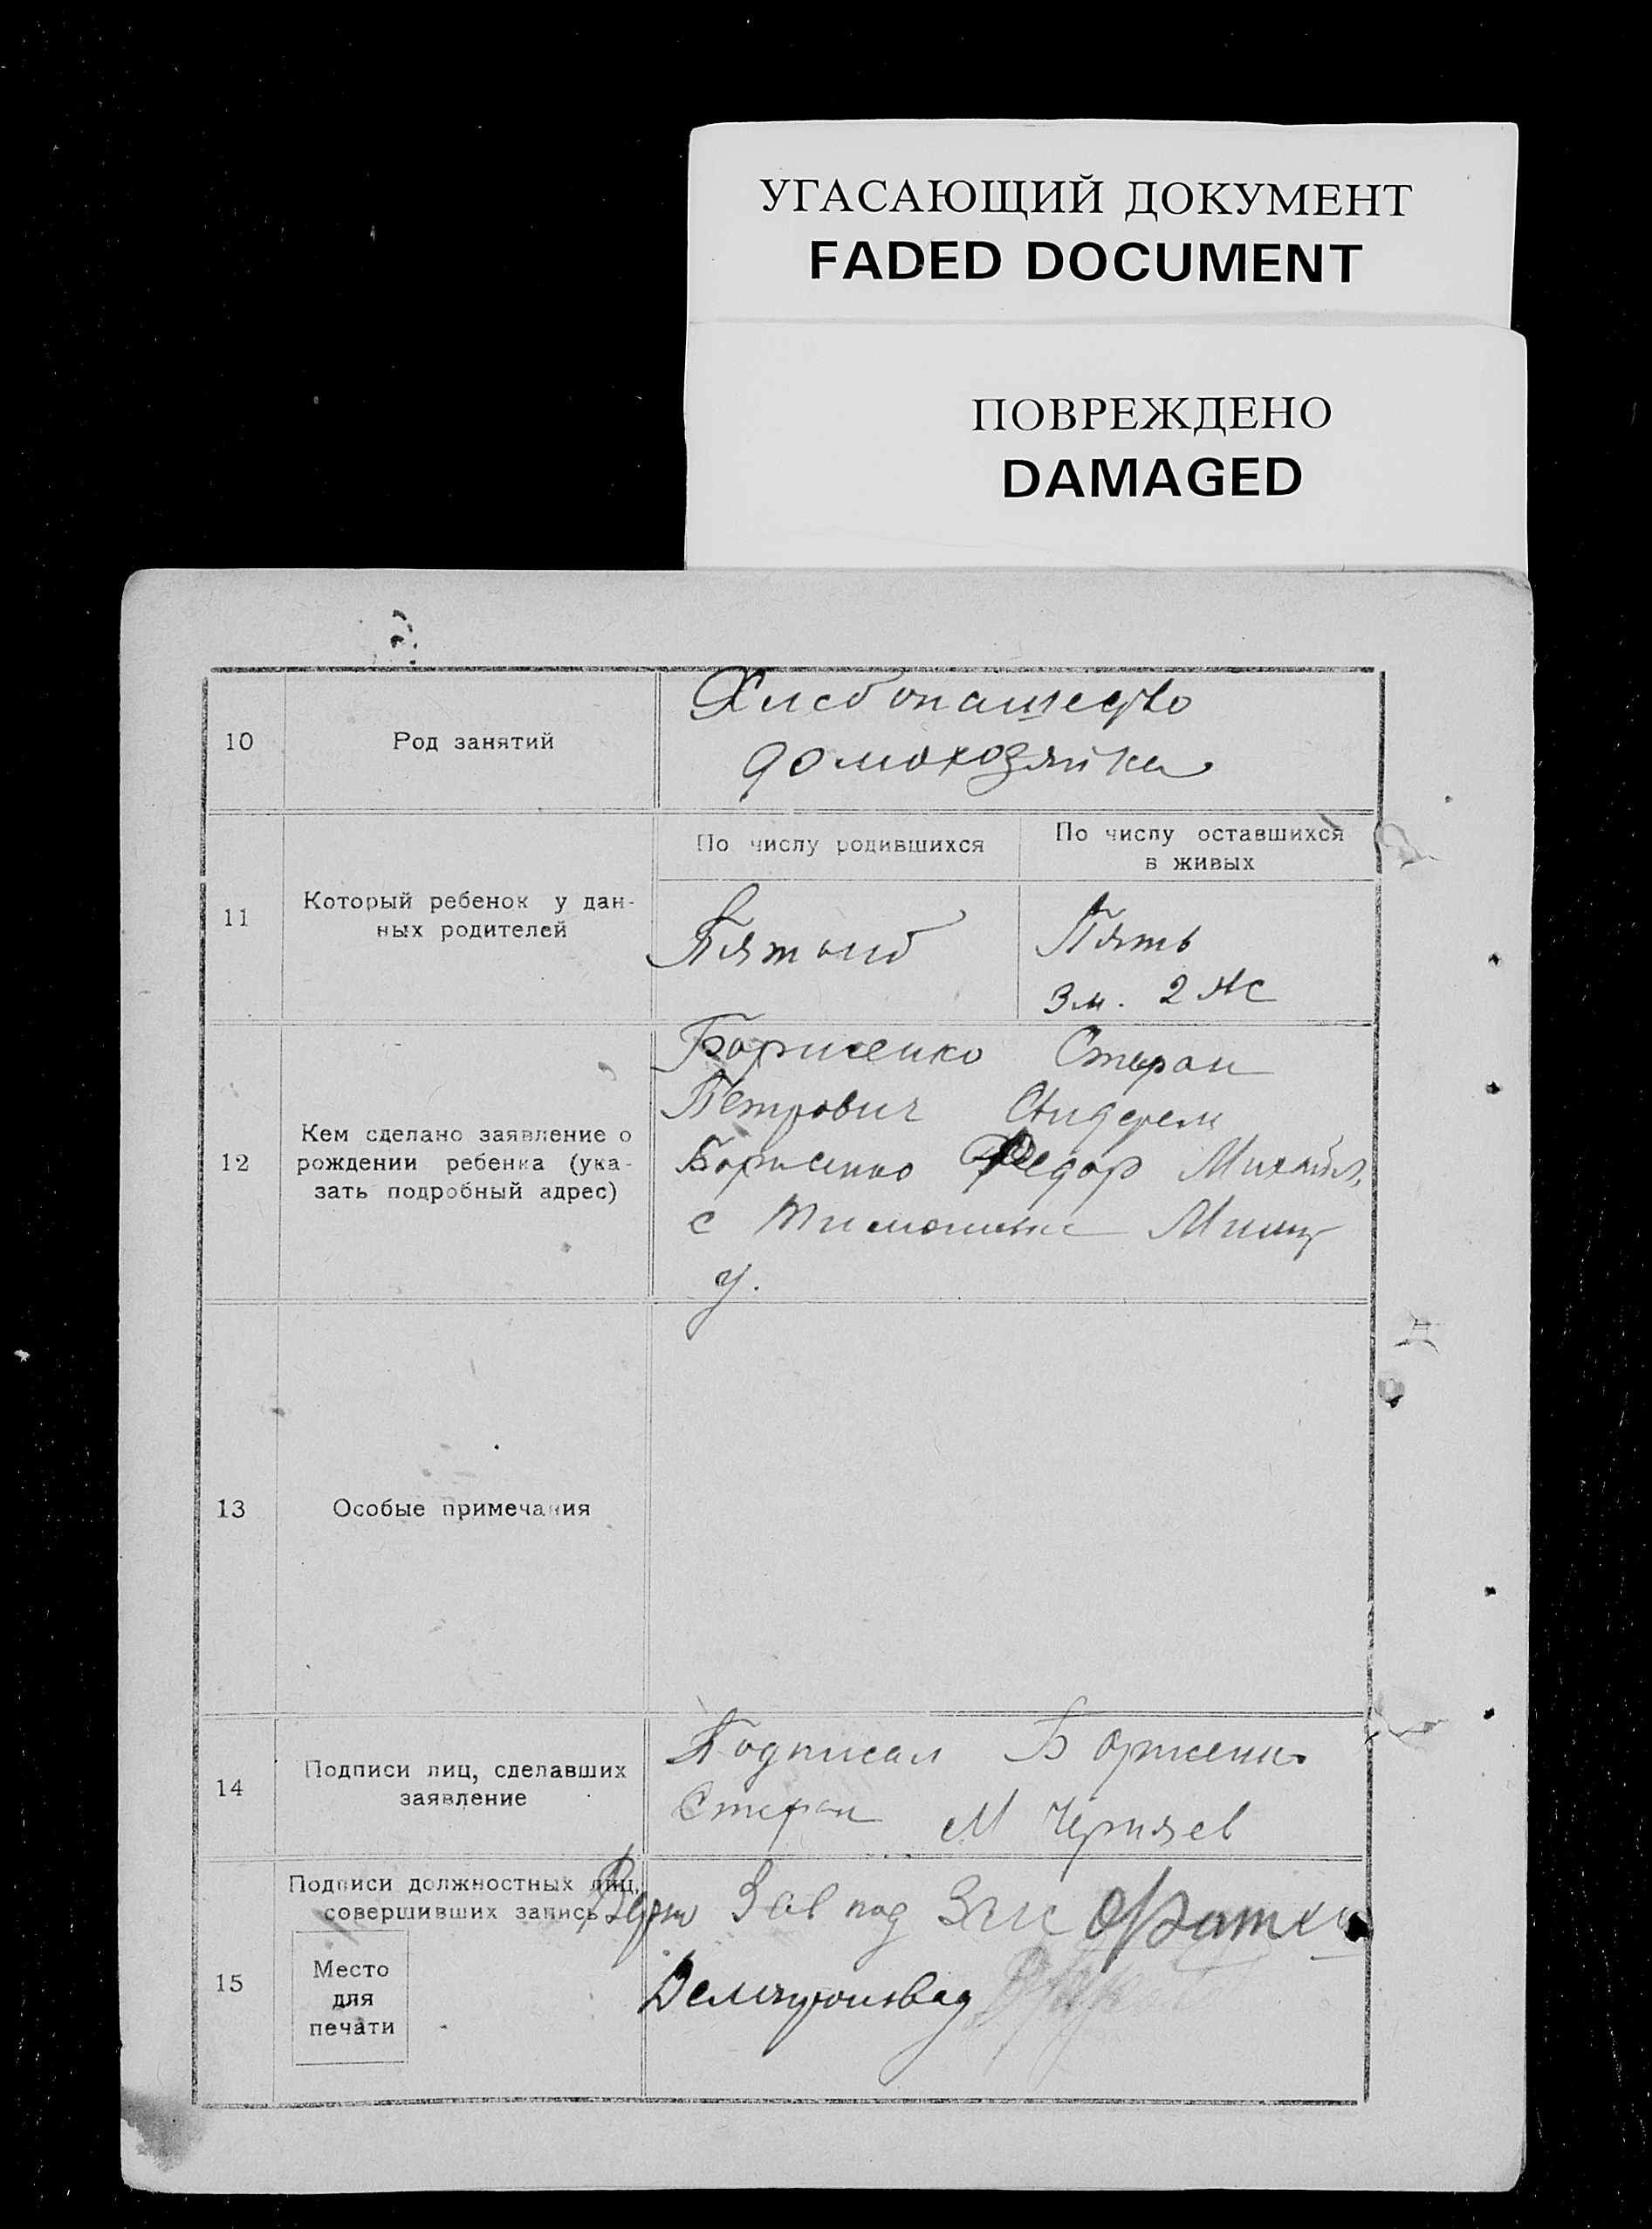 УГАСАЮЩИЙ ДОКУМЕНТ
FADED DOCUMENT
ПОВРЕЖДЕНО
DAMAGED
10
Род занятий
Хлебопашество
домохозяйка
11
Который ребенок у дан-
ных родителей
По числу родившихся
По числу оставшихся
в живых
Пятый
Пять
3 м. 2 ж
12
Кем сделано заявление о
рождении ребенка (ука-
зать подробный адрес)
Борисенко Стефан
Петрович
Борисенко Федор Михайл.
с
у.
13
Особые примечания
14
Подписи лиц, сделавших
заявление
Подписал Борисенко
Стефан М Черняев
15
Подписи должностных лиц,
совершивших запись
Место
для
печати
Зав под